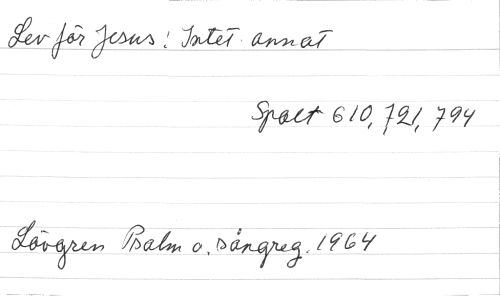 Lev för Jesus! Intet annat
Spalt 610, 721, 794
Lövgren Psalm o. sångreg. 1964